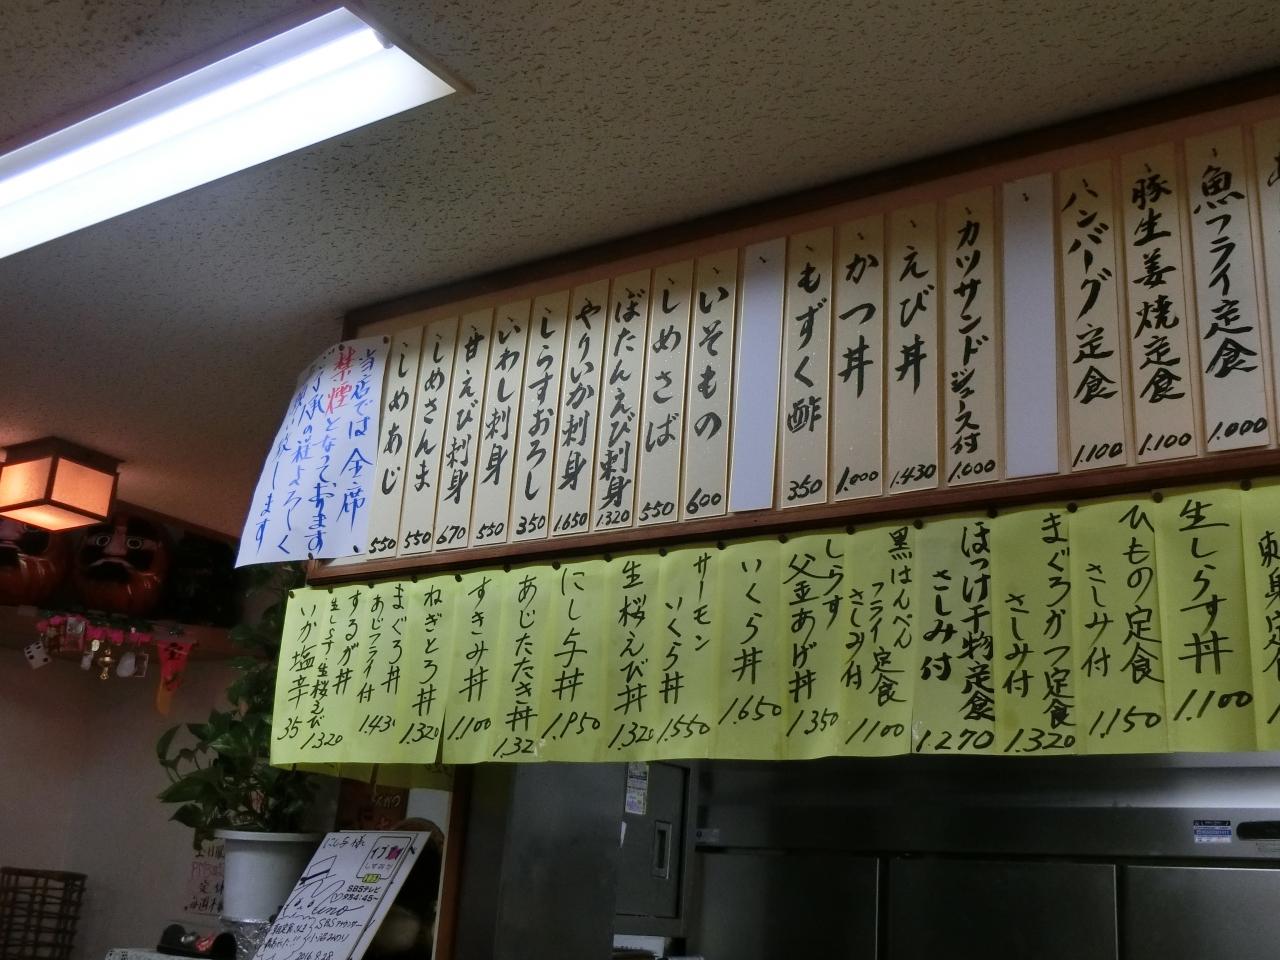 魚フライ定食 1.000
豚生姜焼定食 1.100
ハンバーグ定食 1.100
カツサンドジュース付 1.000
えび丼 1.430
かつ丼 1.000
もずく酢 350
いそもの 600
しめさば 550
ぼたんえび刺身 1320
やりいか刺身 1.650
しらすおろし 350
いわし刺身 550
甘えび刺身 670
しめさんま 550
しめあじ 550
当店では全席
禁煙となっております
生しらす丼 1.100
ひもの定食
さしみ付 1.150
まぐろかつ定食
さしみ付 1.320
ほっけ干物定食
さしみ付 1.270
黒はんぺん
フライ定食
さしみ付 1100
しらす
釜あげ丼 1350
いくら丼 1.650
サーモン
いくら丼 1.550
生桜えび丼 1.320
にし与丼 1.950
あじたたき丼 1.32
すきみ丼 1.100
ねぎとろ丼 1.320
まぐろ丼
あじフライ付 1.43
するが丼
生しらす 生桜えび 1.320
いか塩辛 35
にし与様
SBSテレビ
SBSアナウンサー